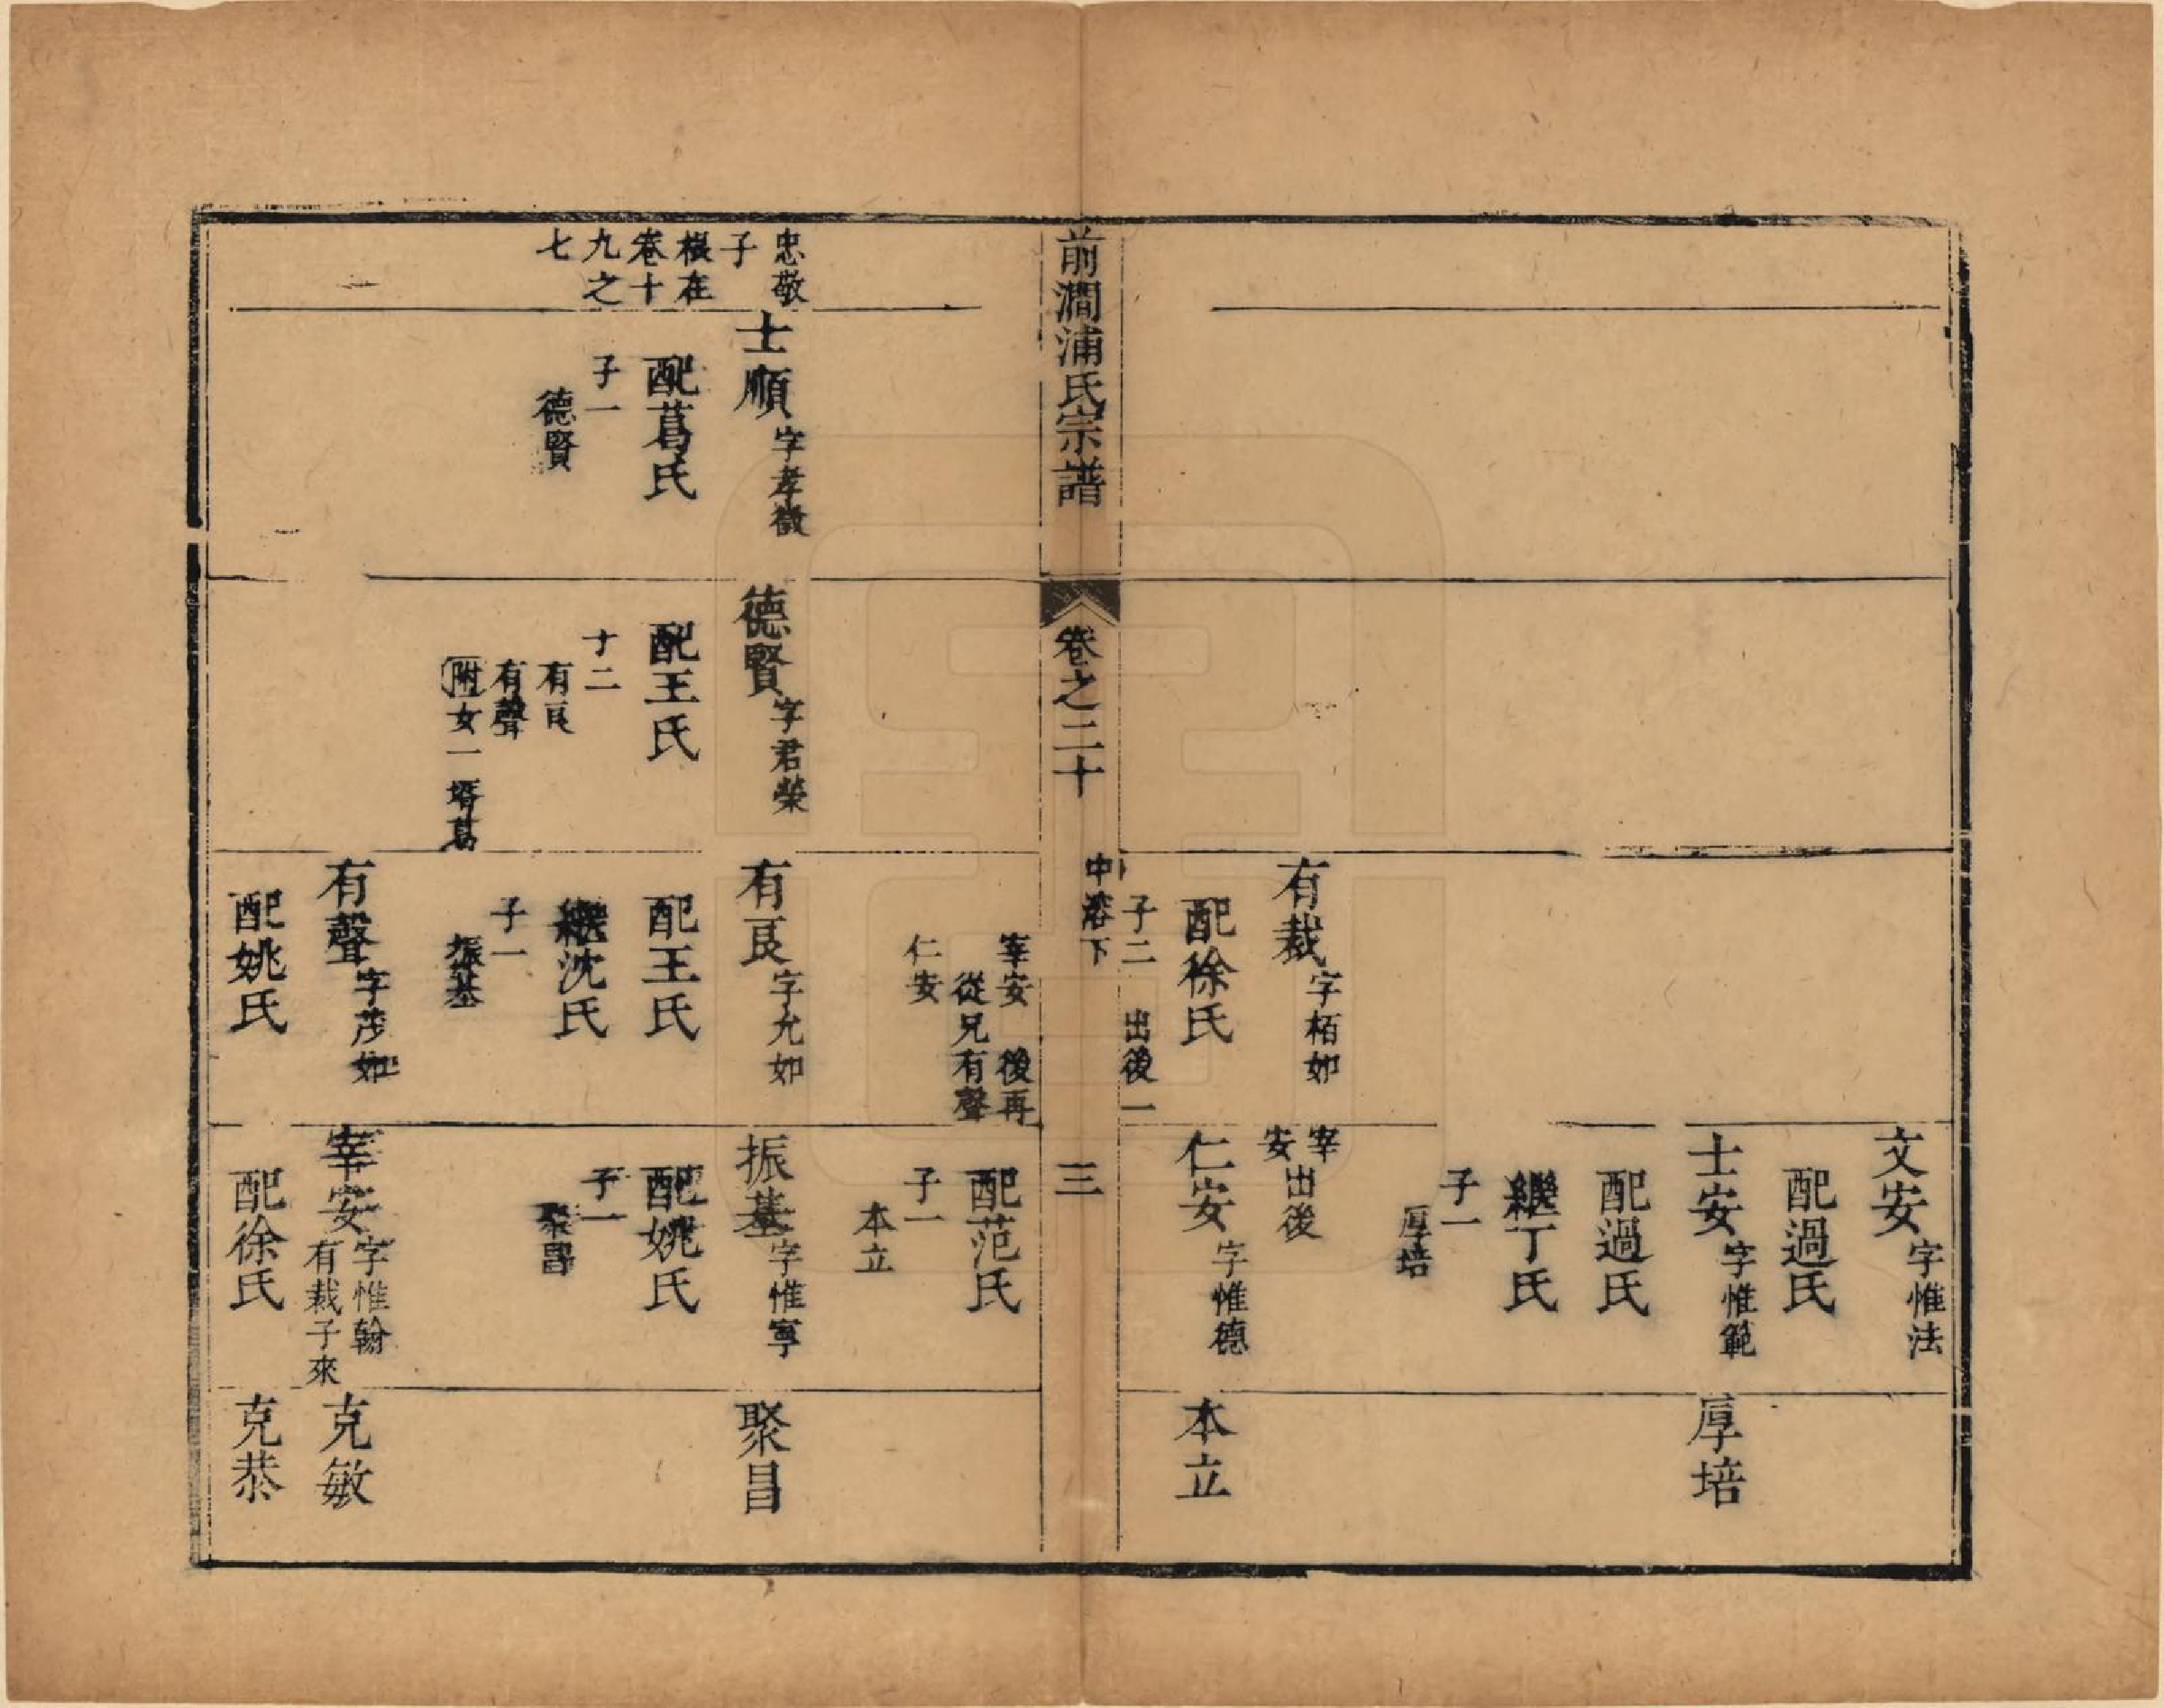 文安字惟法
配過氏
士安字惟範
配過氏
繼丁氏
子一
厚培
厚培
有裁字栢如
配徐氏
子二 出後一
宰安出後
仁安字惟德
本立
前澗浦氏宗譜
卷之二十
中 下
三
宰安 後再從兄有聲
仁安
配范氏
子一
本立
忠敬
子
根在
卷十
九之
七
士順字孝徵
配葛氏
子一
德賢
德賢字君榮
配王氏
子二
有良
有聲
附女一壻葛
有良字允如
配王氏
繼沈氏
子一
振基
振基字惟寧
配姚氏
子一
聚昌
聚昌
有聲字茂如
配姚氏
宰安字惟翰
有裁子來
配徐氏
克敏
克恭